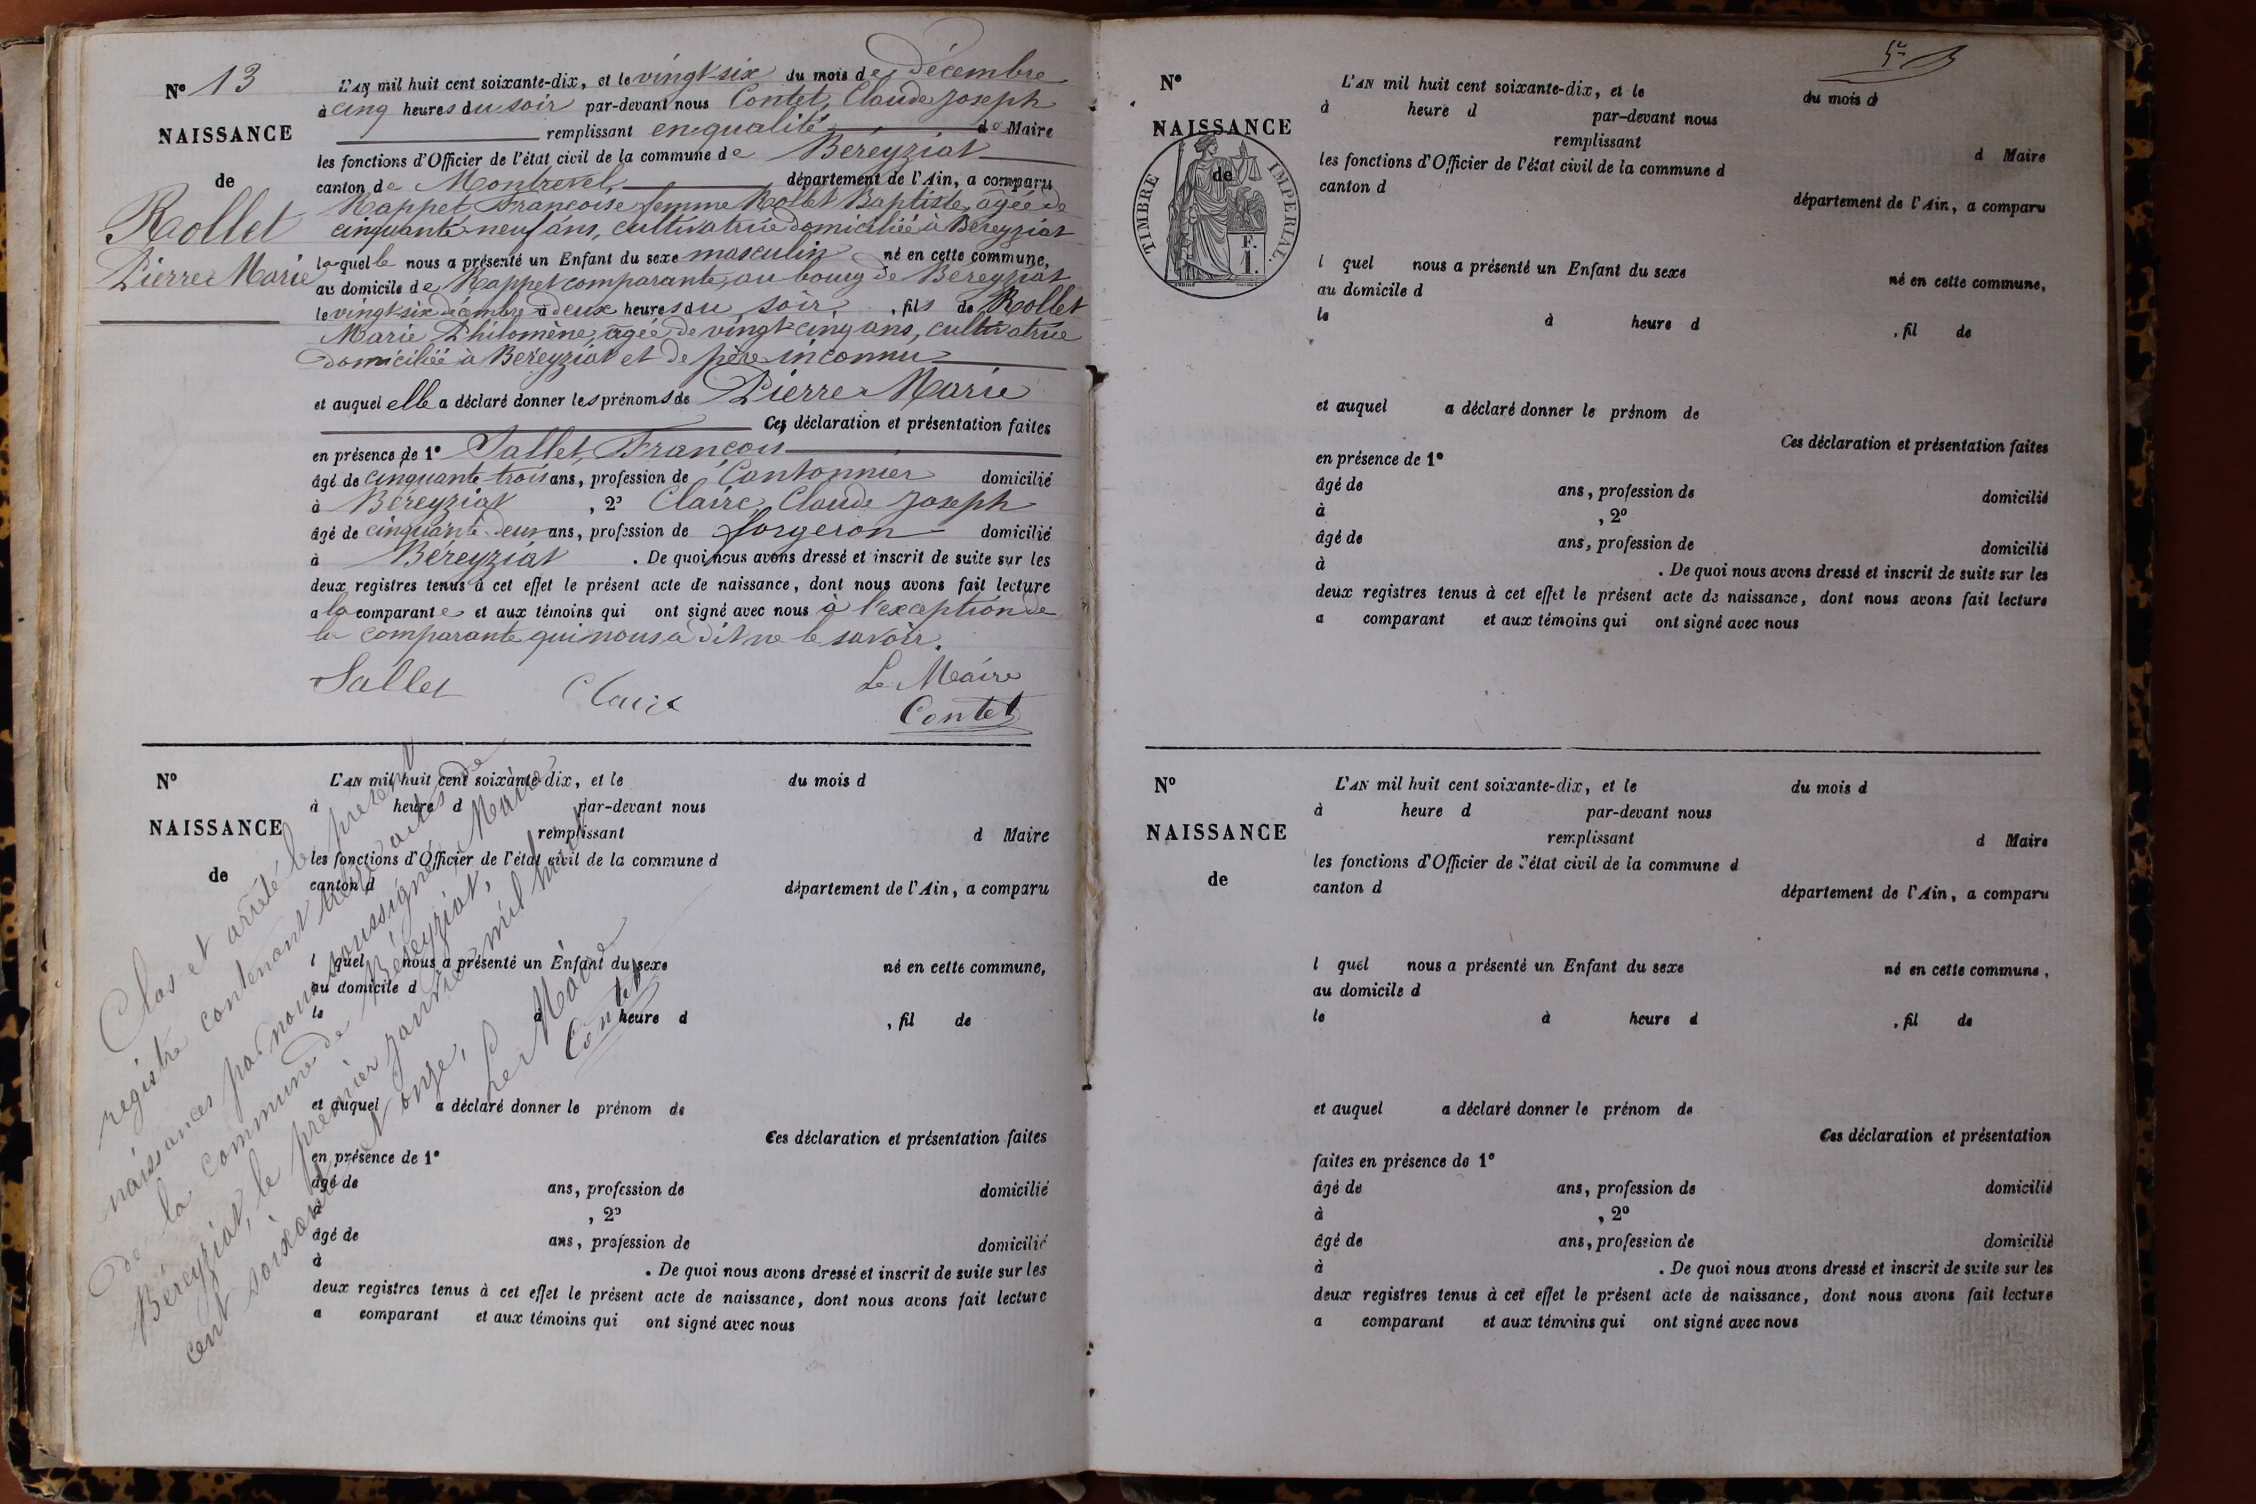 Nº 13
NAISSANCE
de
Rollet
Pierre Marie
L'AN mil huit cent soixante-dix, et le vingt-six du mois de décembre
à cinq heures du soir par-devant nous Contet, Claude Joseph
remplissant en qualité de Maire
les fonctions d'Officier de l'état civil de la commune de Béreyziat
canton de Montrevel, département de l'Ain, a comparu
Rappet Françoise femme Rollet Baptiste, agée de
cinquante-neuf ans, cultivatrice domiciliée à Béreyziat
laquelle nous a présenté un Enfant du sexe masculin né en cette commune,
au domicile de Rappet comparante, au bourg de Béreyziat
le vingt-six décembre à deux heures du soir, , fils de Rollet
Marie Philomène, agée de vingt-cinq ans, cultivatrice
domiciliée à Béreyziat et de père inconnu
et auquel elle a déclaré donner les prénoms de Pierre Marie
Ces déclaration et présentation faites
en présence de 1º Sallet, François
âgé de cinquante-trois ans, profession de Cantonnier domicilié
à Béreyziat , 2º Claire, Claude Joseph
âgé de cinquante-deux ans, profession de forgeron domicilié
à Béreyziat . De quoi nous avons dressé et inscrit de suite sur les
deux registres tenus à cet effet le présent acte de naissance, dont nous avons fait lecture
a la comparante et aux témoins qui ont signé avec nous à l'exception de
la comparante qui nous a dit ne le savoir.
Sallet Claire Le Maire
Contet
Nº
NAISSANCE
de
L'AN mil huit cent soixante-dix, et le du mois d
à heure d par-devant nous
remplissant d Maire
les fonctions d'Officier de l'état civil de la commune d
canton d département de l'Ain, a comparu
l quel nous a présenté un Enfant du sexe né en cette commune,
au domicile d
le à heure d , fil de
et auquel a déclaré donner le prénom de
Ces déclaration et présentation faites
en présence de 1º
âgé de ans, profession de domicilié
à , 2º
âgé de ans, profession de domicilié
à . De quoi nous avons dressé et inscrit de suite sur les
deux registres tenus à cet effet le présent acte de naissance, dont nous avons fait lecture
a comparant et aux témoins qui ont signé avec nous
Clos et arrêté le présent
registre contenant treize actes de
naissances par nous soussigné, Maire
de la commune de Béreyziat, à
Béreyziat, le premier janvier mil huit
cent soixante et onze,
Le Maire
Contet
5e
Nº
NAISSANCE
de
TIMBRE IMPERIAL.
F. I.
L'AN mil huit cent soixante-dix, et le du mois d
à heure d par-devant nous
remplissant d Maire
les fonctions d'Officier de l'état civil de la commune d
canton d département de l'Ain, a comparu
l quel nous a présenté un Enfant du sexe né en cette commune,
au domicile d
le à heure d , fil de
et auquel a déclaré donner le prénom de
Ces déclaration et présentation faites
en présence de 1º
âgé de ans, profession de domicilié
à , 2º
âgé de ans, profession de domicilié
à . De quoi nous avons dressé et inscrit de suite sur les
deux registres tenus à cet effet le présent acte de naissance, dont nous avons fait lecture
a comparant et aux témoins qui ont signé avec nous
Nº
NAISSANCE
de
L'AN mil huit cent soixante-dix, et le du mois d
à heure d par-devant nous
remplissant d Maire
les fonctions d'Officier de l'état civil de la commune d
canton d département de l'Ain, a comparu
l quel nous a présenté un Enfant du sexe né en cette commune,
au domicile d
le à heure d , fil de
et auquel a déclaré donner le prénom de
Ces déclaration et présentation
faites en présence de 1º
âgé de ans, profession de domicilié
à , 2º
âgé de ans, profession de domicilié
à . De quoi nous avons dressé et inscrit de suite sur les
deux registres tenus à cet effet le présent acte de naissance, dont nous avons fait lecture
a comparant et aux témoins qui ont signé avec nous